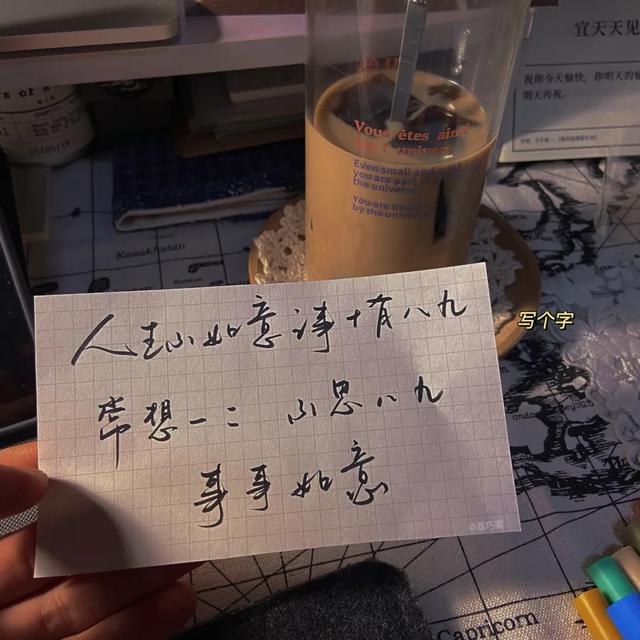 宜天天见
祝你今天愉快，你明天的愉
明天再祝。
Vous êtes aimé
Even small and
you are part of
the universe
You are loved
by the universe
Kazakhstan
写个字
人生不如意事十有八九
常想一二 不思八九
事事如意
Capricorn